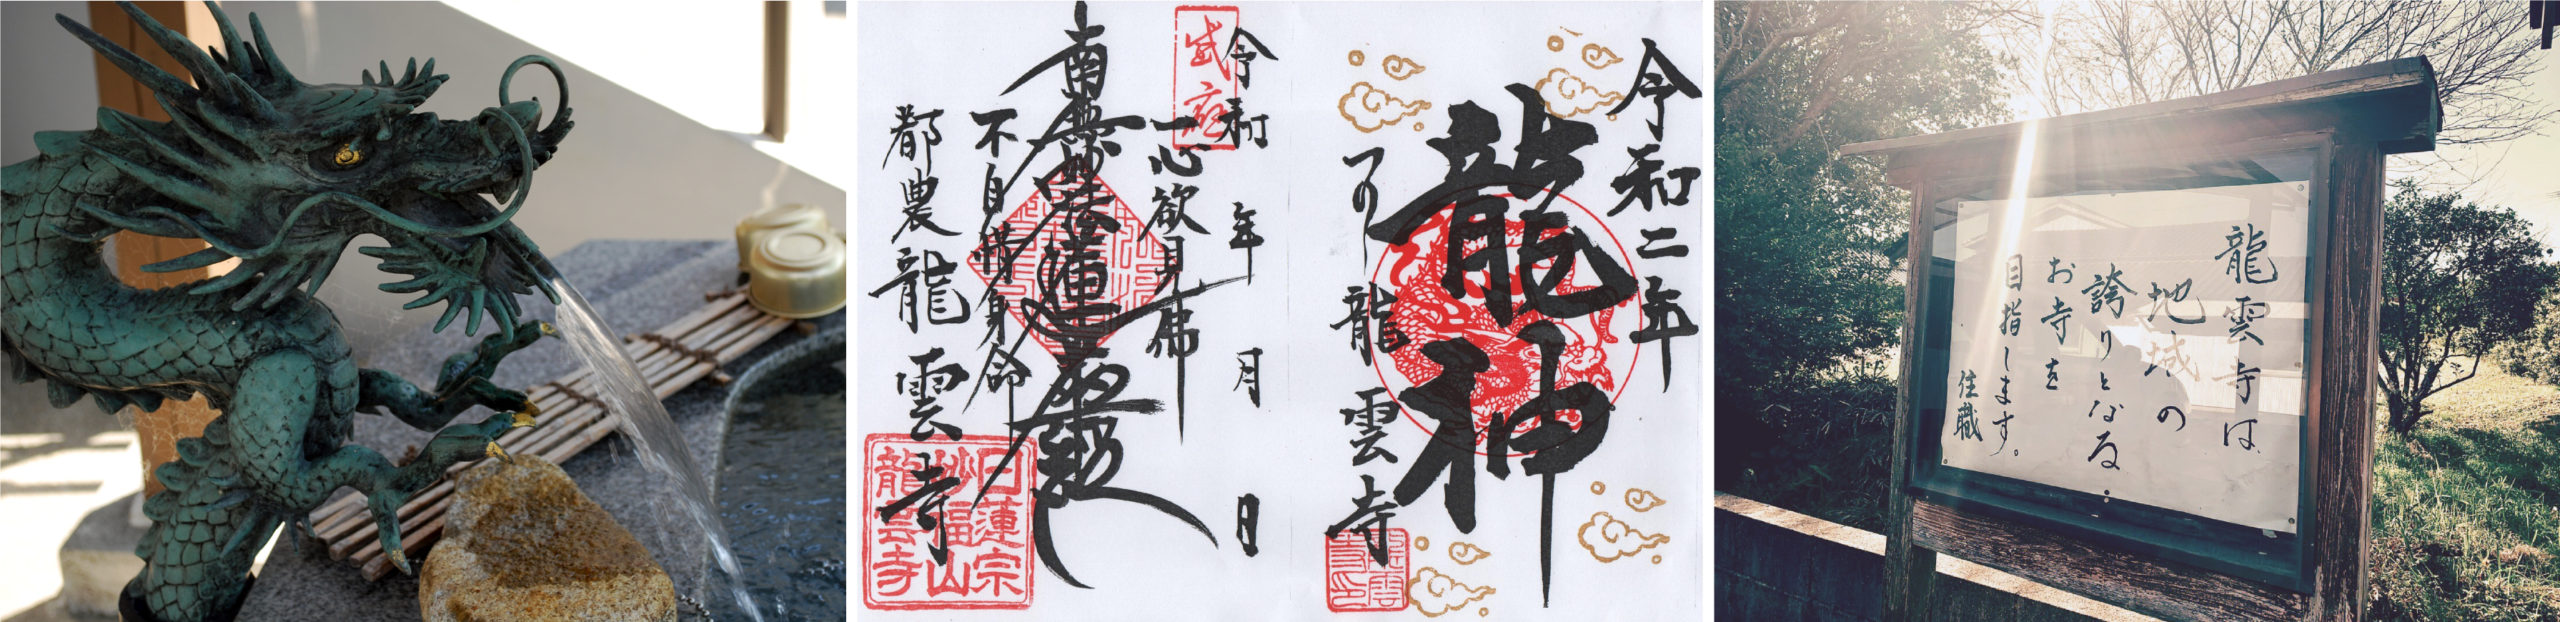 令和 年 月 日
一心欲見佛
南無妙法蓮華経
不自惜身命
都農龍雲寺
日蓮宗
妙福山
龍雲寺
令和二年
龍神
龍雲寺
龍雲寺は
地域の
誇りとなる
お寺を
目指します。
住職